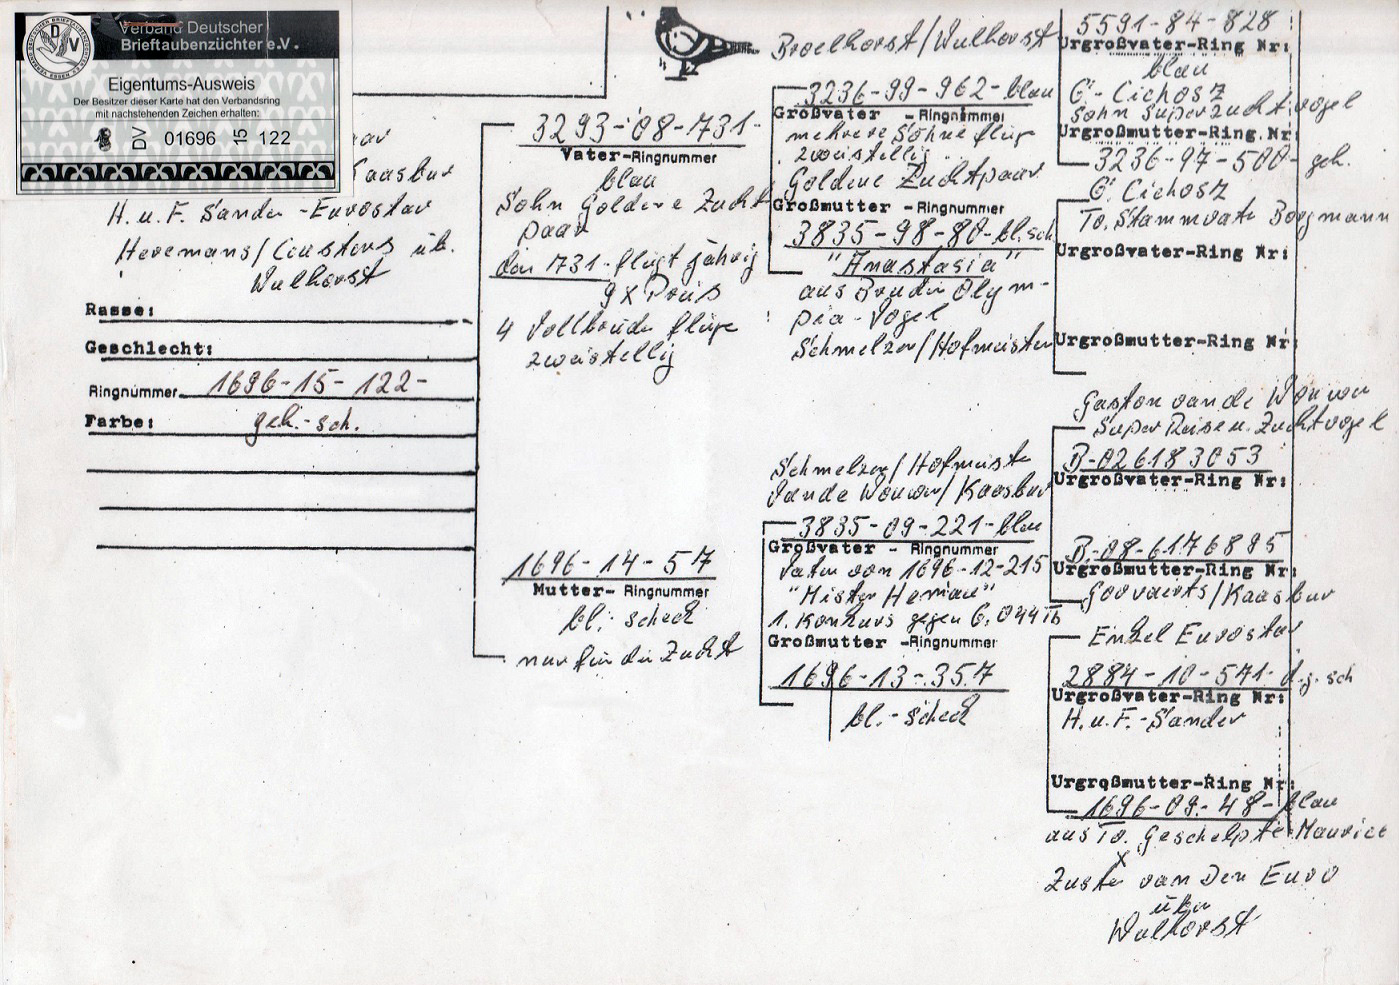 Verband Deutscher
Brieftaubenzüchter e.V.
Eigentums-Ausweis
Der Besitzer dieser Karte hat den Verbandsring
mit nachstehenden Zeichen erhalten:
DV 01696 15 122
H. u. F. Sander - Eurostar
Heremans/Ceusters üb.
Wulhorst
Rasse:
Geschlecht:
Ringnummer 1696-15-122-
Farbe: geh.-sch.
3293-08-731-
Vater-Ringnummer
blau
Sohn Goldene Zucht
paar
den 731-fliegt jährig
9x Preis
4 Vollbrüder fliegen
zweistellig
1696-14-57
Mutter-Ringnummer
bl.-scheck
nur für die Zucht
Broelhorst/Wulhorst
3236-99-962-blau
Großvater-Ringnummer
mehrere Söhne flieg
zweistellig
Goldene Zuchtpaar
Großmutter-Ringnummer
3835-98-80-bl.sch
"Anastasia"
aus Bruder Olym-
pia-Vogel
Schmelzer/Hofmeister
Schmelzer/Hofmeister
Vande Wouwer/Kaasbur
3835-09-221-blau
Großvater - Ringnummer
Vater von 1696-12-215
1. Konkurs gegen 6.044 Tb
Großmutter-Ringnummer
1696-13-357
bl.-scheck
5591-84-828
Urgroßvater-Ring Nr:
blau
G. Cichosz
Sohn Superzuchtvogel
Urgroßmutter-Ring Nr:
3236-97-500- geh.
G. Cichosz
To. Stammvater Borgmann
Urgroßvater-Ring Nr:
Urgroßmutter-Ring Nr:
Gaston van de Wouwer
Super Reise u. Zuchtvogel
B-026183053
Urgroßvater-Ring Nr:
B-08-6176895
Urgroßmutter-Ring Nr:
Govvaerts/Kaasbur
Enkel Eurostar
2884-10-571- d.g.sch
Urgroßvater-Ring Nr:
H. u. F.-Sander
Urgroßmutter-Ring Nr:
1696-09-48-blau
aus To. Geschelpte Maurice
x
Zuster van Den Euro
über
Wulhorst